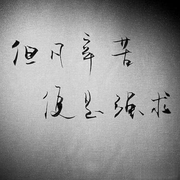 但凡辛苦
便是强求